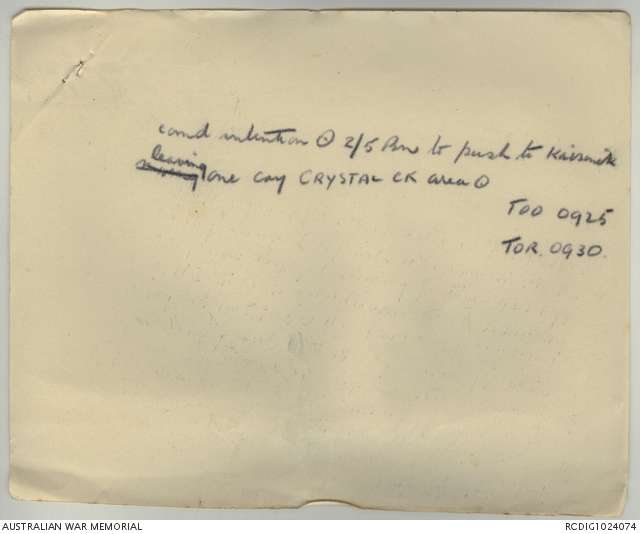 comd intention ⊙ 2/5 Bn to push to Kaisenik
leaving
one coy CRYSTAL CK area ⊙
TOO 0925
TOR. 0930.
AUSTRALIAN WAR MEMORIAL
RCDIG1024074